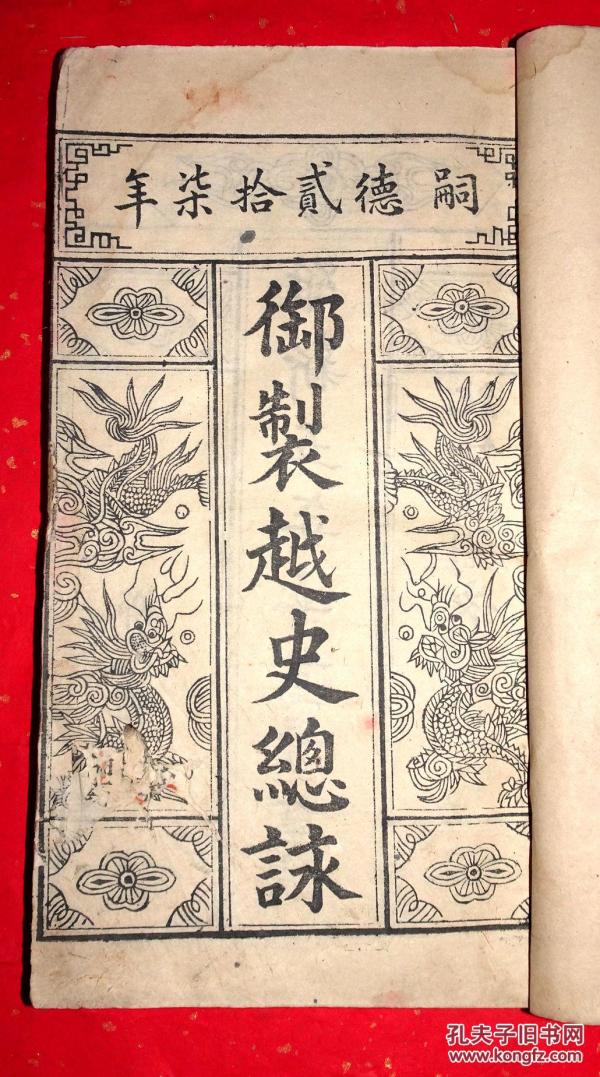 嗣德貳拾柒年
御製越史總詠
孔夫子旧书网
www.kongfz.com